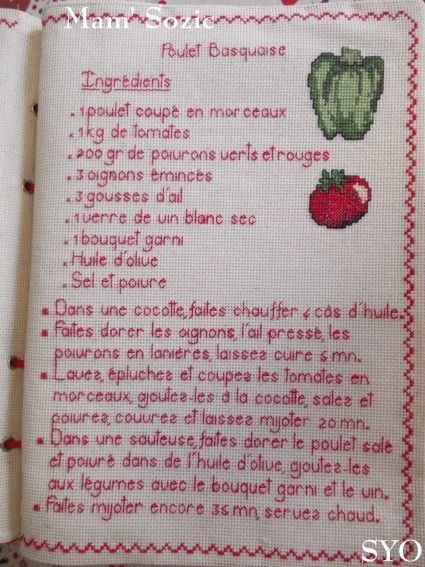 Mam' Sozic
Poulet Basquaise
Ingrédients
. 1 poulet coupé en morceaux
. 1 kg de tomates
. 200 gr de poivrons verts et rouges
. 3 oignons émincés
. 3 gousses d'ail
. 1 verre de vin blanc sec
. 1 bouquet garni
. Huile d'olive
. Sel et poivre
* Dans une cocotte, faites chauffer 4 càs d'huile.
* Faites dorer les oignons, l'ail pressé, les
poivrons en lanières, laissez cuire 5 mn.
* Lavez, épluchez et coupez les tomates en
morceaux, ajoutez-les à la cocotte, salez et
poivrez, couvrez et laissez mijoter 20 mn.
* Dans une sauteuse, faites dorer le poulet salé
et poivré dans de l'huile d'olive, ajoutez-les
aux légumes avec le bouquet garni et le vin.
* Faites mijoter encore 35 mn, servez chaud.
SYO